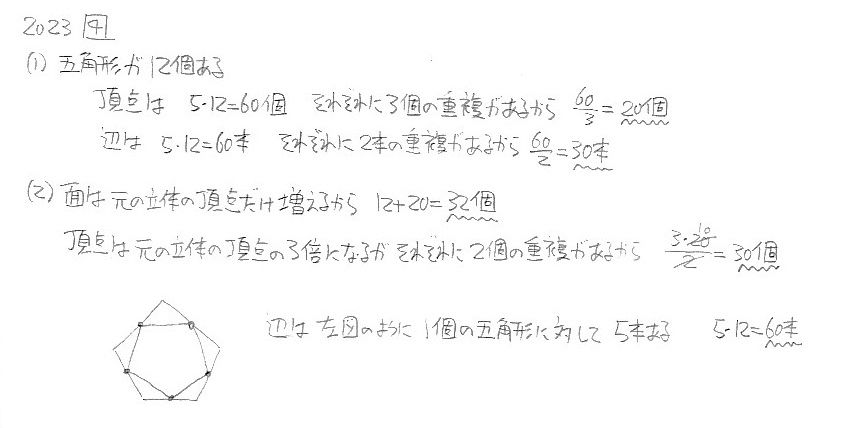 2023 4
(1) 五角形が12個ある
頂点は 5・12=60個 それぞれに3個の重複があるから 60/3=20個
辺は 5・12=60本 それぞれに2本の重複があるから 60/2=30本
(2) 面は元の立体の頂点だけ増えるから 12+20=32個
頂点は元の立体の頂点の3倍になるが それぞれに2個の重複があるから 3・20/2=30個
辺は左図のように1個の五角形に対して5本ある 5・12=60本